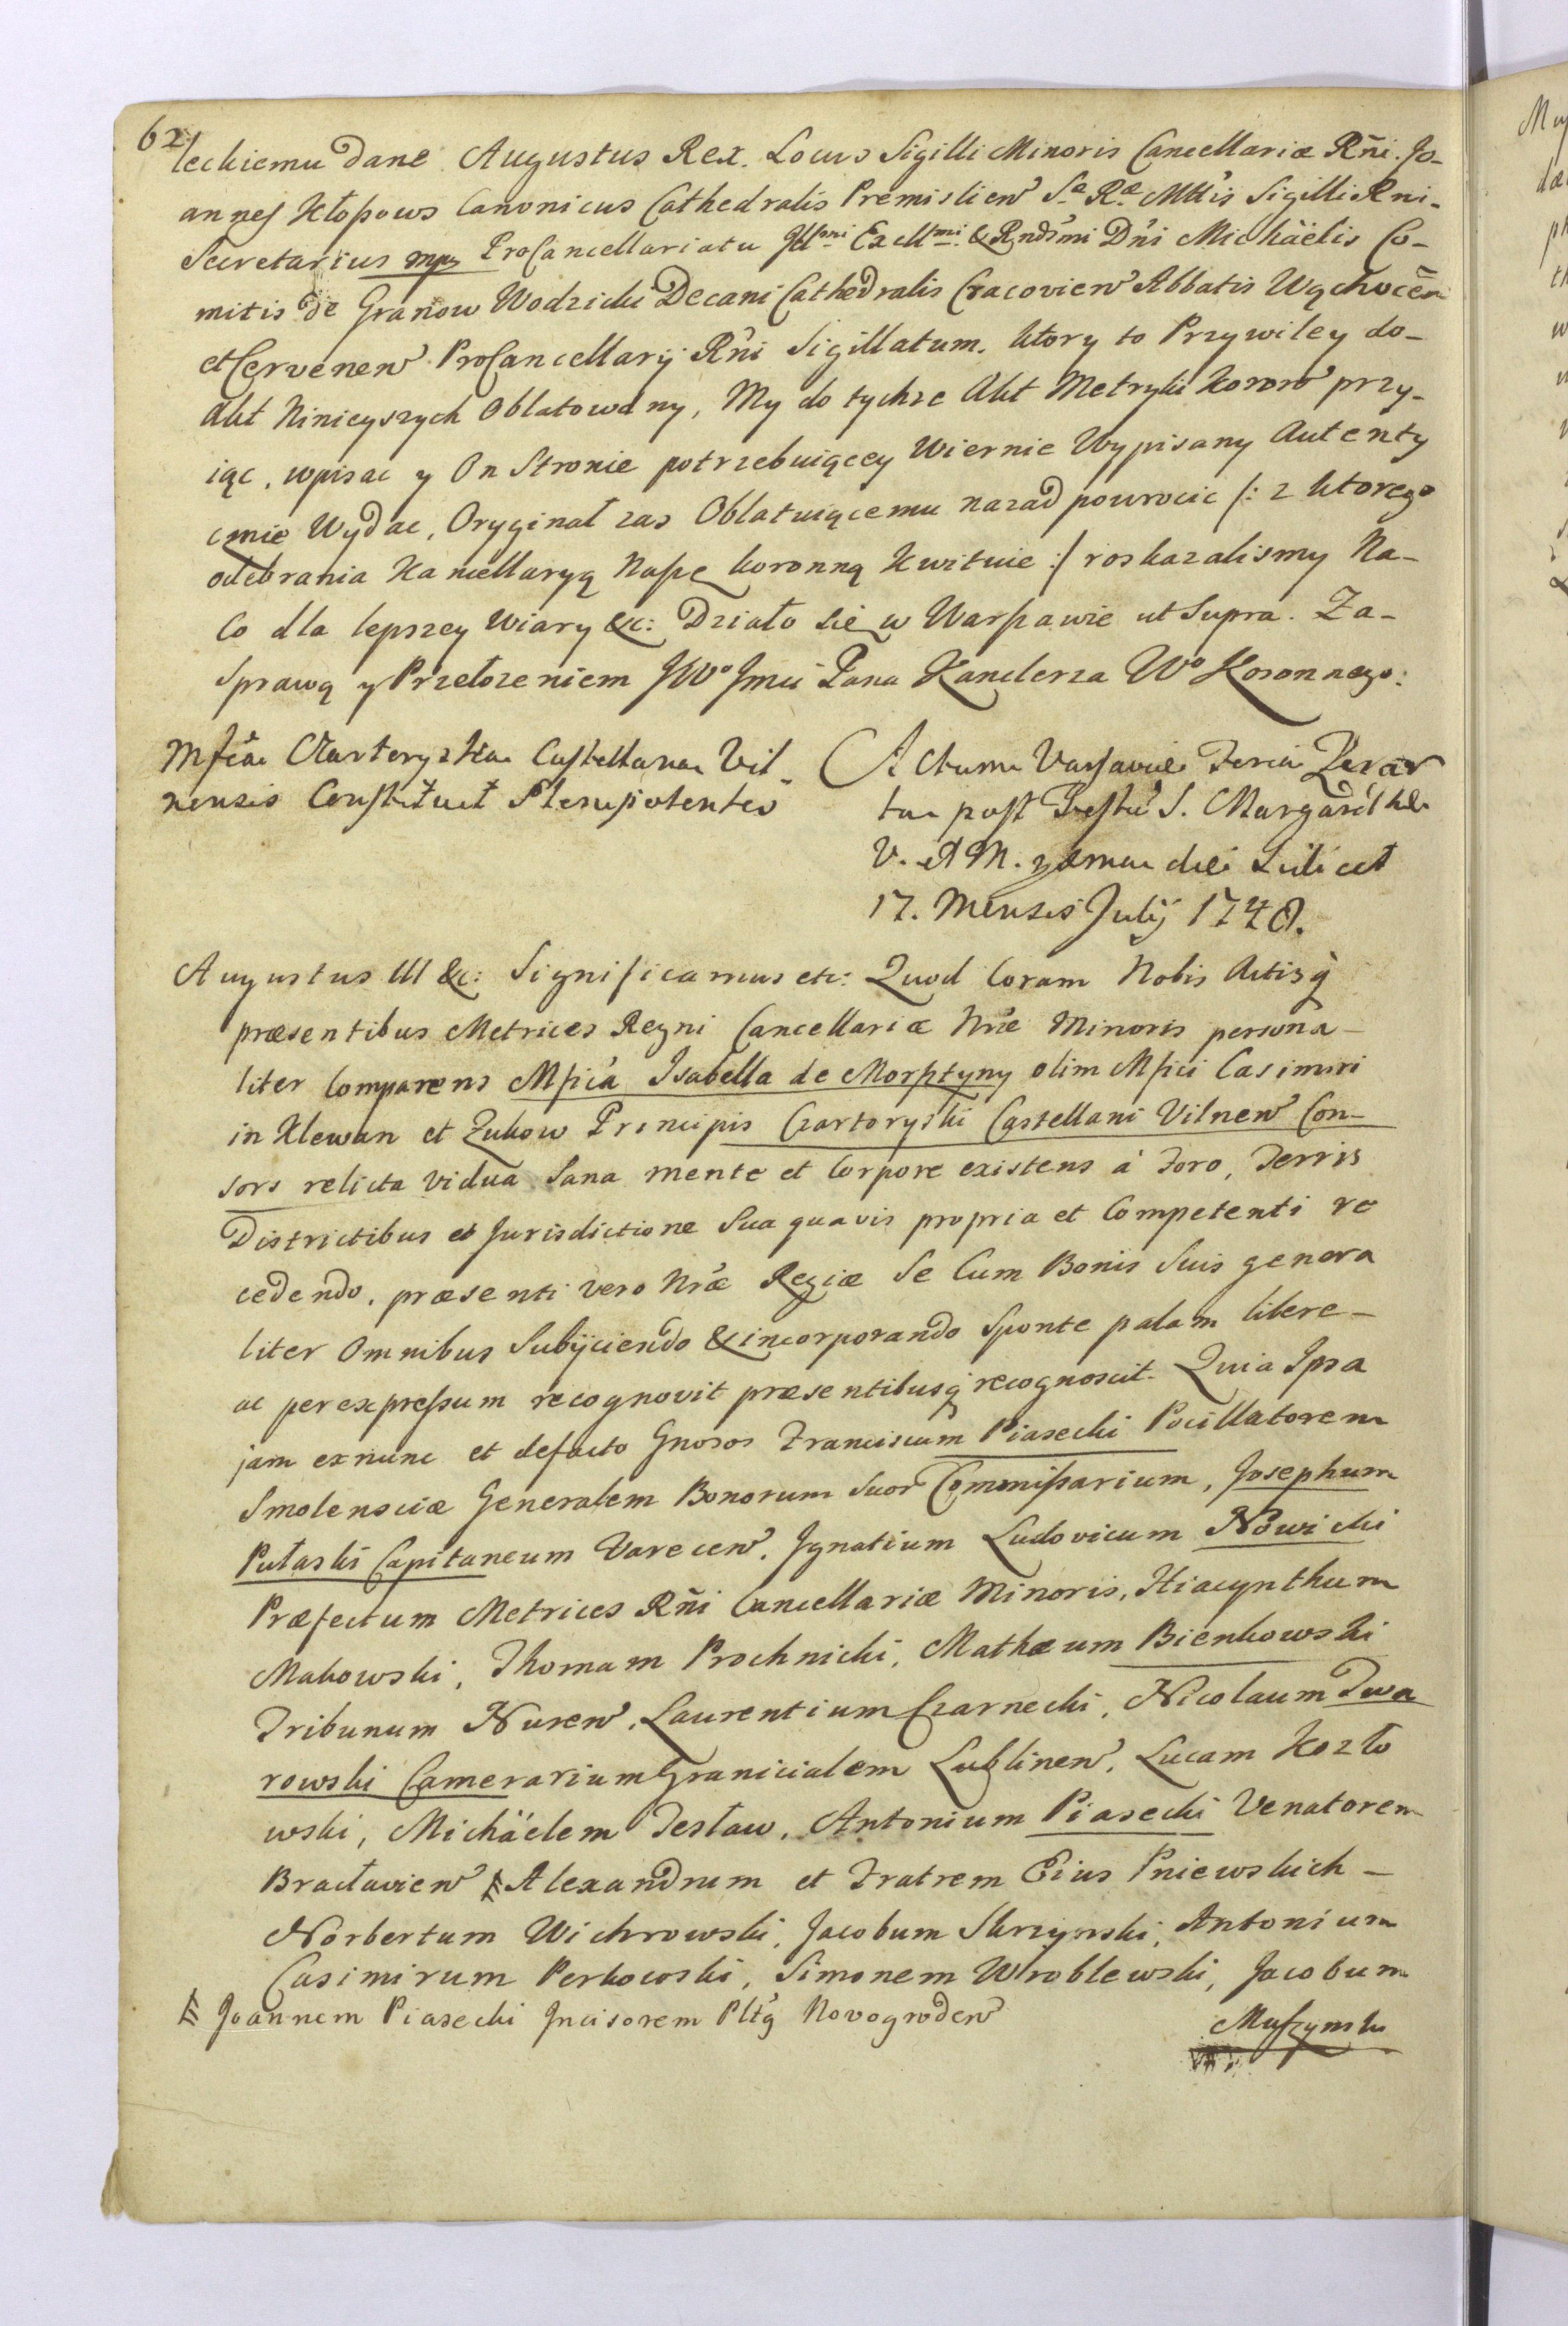 62
leckiemu dane Augustus Rex. Locus Sigilli Minoris Cancellariæ Rñi. Jo-
annes Kłossows Canonicus Cathedralis Premislien Sæ Ræ Mttis Sigilli Rni.
Secretarius mpp ProCancellariatu Illmi Excllmi & Rndsmi Dni Michäelis Co-
mitis de Granow Wodzicki Decani Cathedralis Cracovien Abbatis Wąchocen
et Cervenen ProCancellarij Rni Sigillatum. ktory to Przywiley do-
Akt Ninieyszych Oblatowany, My do tychze Akt Metryki Koron przy-
iąc, wpisac y On Stronie potrzebuiącey Wiernie Wypisany Autenty
cznie Wydac, Oryginał zas Oblatuiącemu nazad powrocic /: z ktorego
odebrania Kancellaryą Naszę koronną Kwituie :/ roskazalismy Na-
Co dla lepszey Wiary &c: Działo się w Warszawie ut Supra. Za-
Sprawą y Przełozeniem JWo Jmci Pana Kanclerza Wo Koronnego:
Mfca Czartoryska Castellana Vil-
nensis Constituit Plenipotentes
Actum Varsaviæ Feria Quar
ta post Festu S. Margarethæ
V. et M. xima die Scilicet
17. Mensis Julij 1748.
Augustus III &c: Significamus etc: Quod Coram Nobis Actisq
præsentibus Metrices Regni Cancellariæ Nræ Minoris persona-
liter Comparens Mfica Isabella de Morsztyny olim Mfici Casimiri
in Klewan et Zukow Principis Czartoryski Castellani Vilnen Con-
sors relicta Vidua Sana mente et Corpore existens à Foro, Terris
Districtibus et Jurisdictione Sua quavis propria et Competenti re
cedendo, præsenti vero Nræ Regiæ Se Cum Bonis Suis genera
liter Omnibus Subijciendo & incorporando Sponte palam libere-
ac per expressum recognovit præsentibusq recognoscit. Quia Ipsa
jam exnunc et defacto Gnosos Franciscum Piasecki Pocillatorem
Smolensciæ Generalem Bonorum Suor Commissarium, Josephum
Pułaski Capitaneum Varecen, Ignatium Ludovicum Nowicki
Præfectum Metrices Rñi Cancellariæ Minoris, Hiacynthum
Makowski, Thomam Prochnicki, Mathæum Bienkowski
Tribunum Nuren, Laurentium Czarnecki, Nicolaum Twa
rowski Camerarium Granicialem Lublinen, Lucam Kozło
wski, Michäelem Tesław, Antonium Piasecki Venatorem
Bracłavien # Alexandrum et Fratrem Eius Pniewskich -
Norbertum Wichrowski, Jacobum Skrzynski, Antonium
Casimirum Perkowski, Simonem Wroblewski, Jacobum
# Joannem Piasecki Incisorem Pltq Novogroden
Muszynski